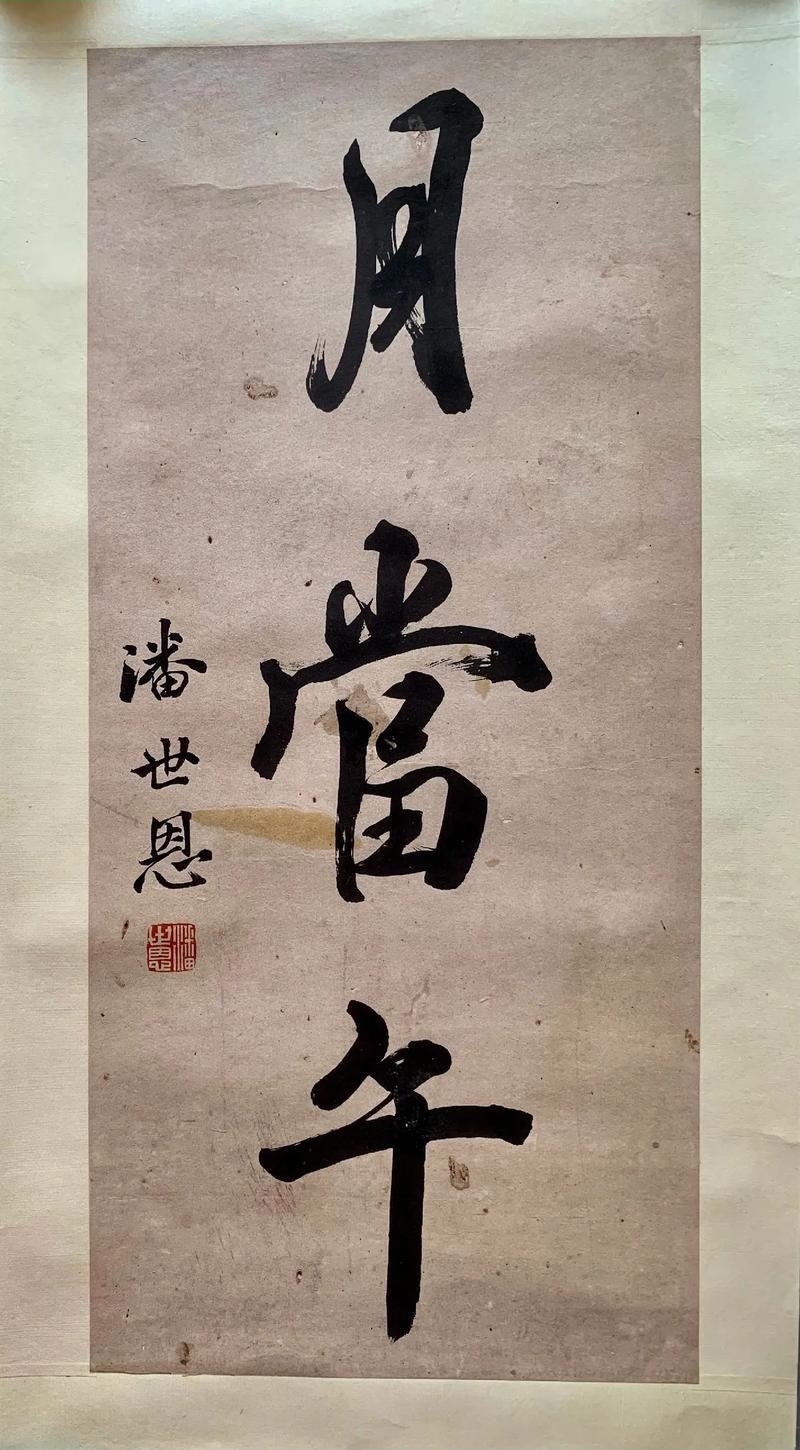 月當午
潘世恩
潘世恩